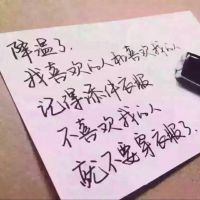 降温了.
我喜欢的人和喜欢我的人
记得添件衣服
不喜欢我的人
就不要穿衣服了.